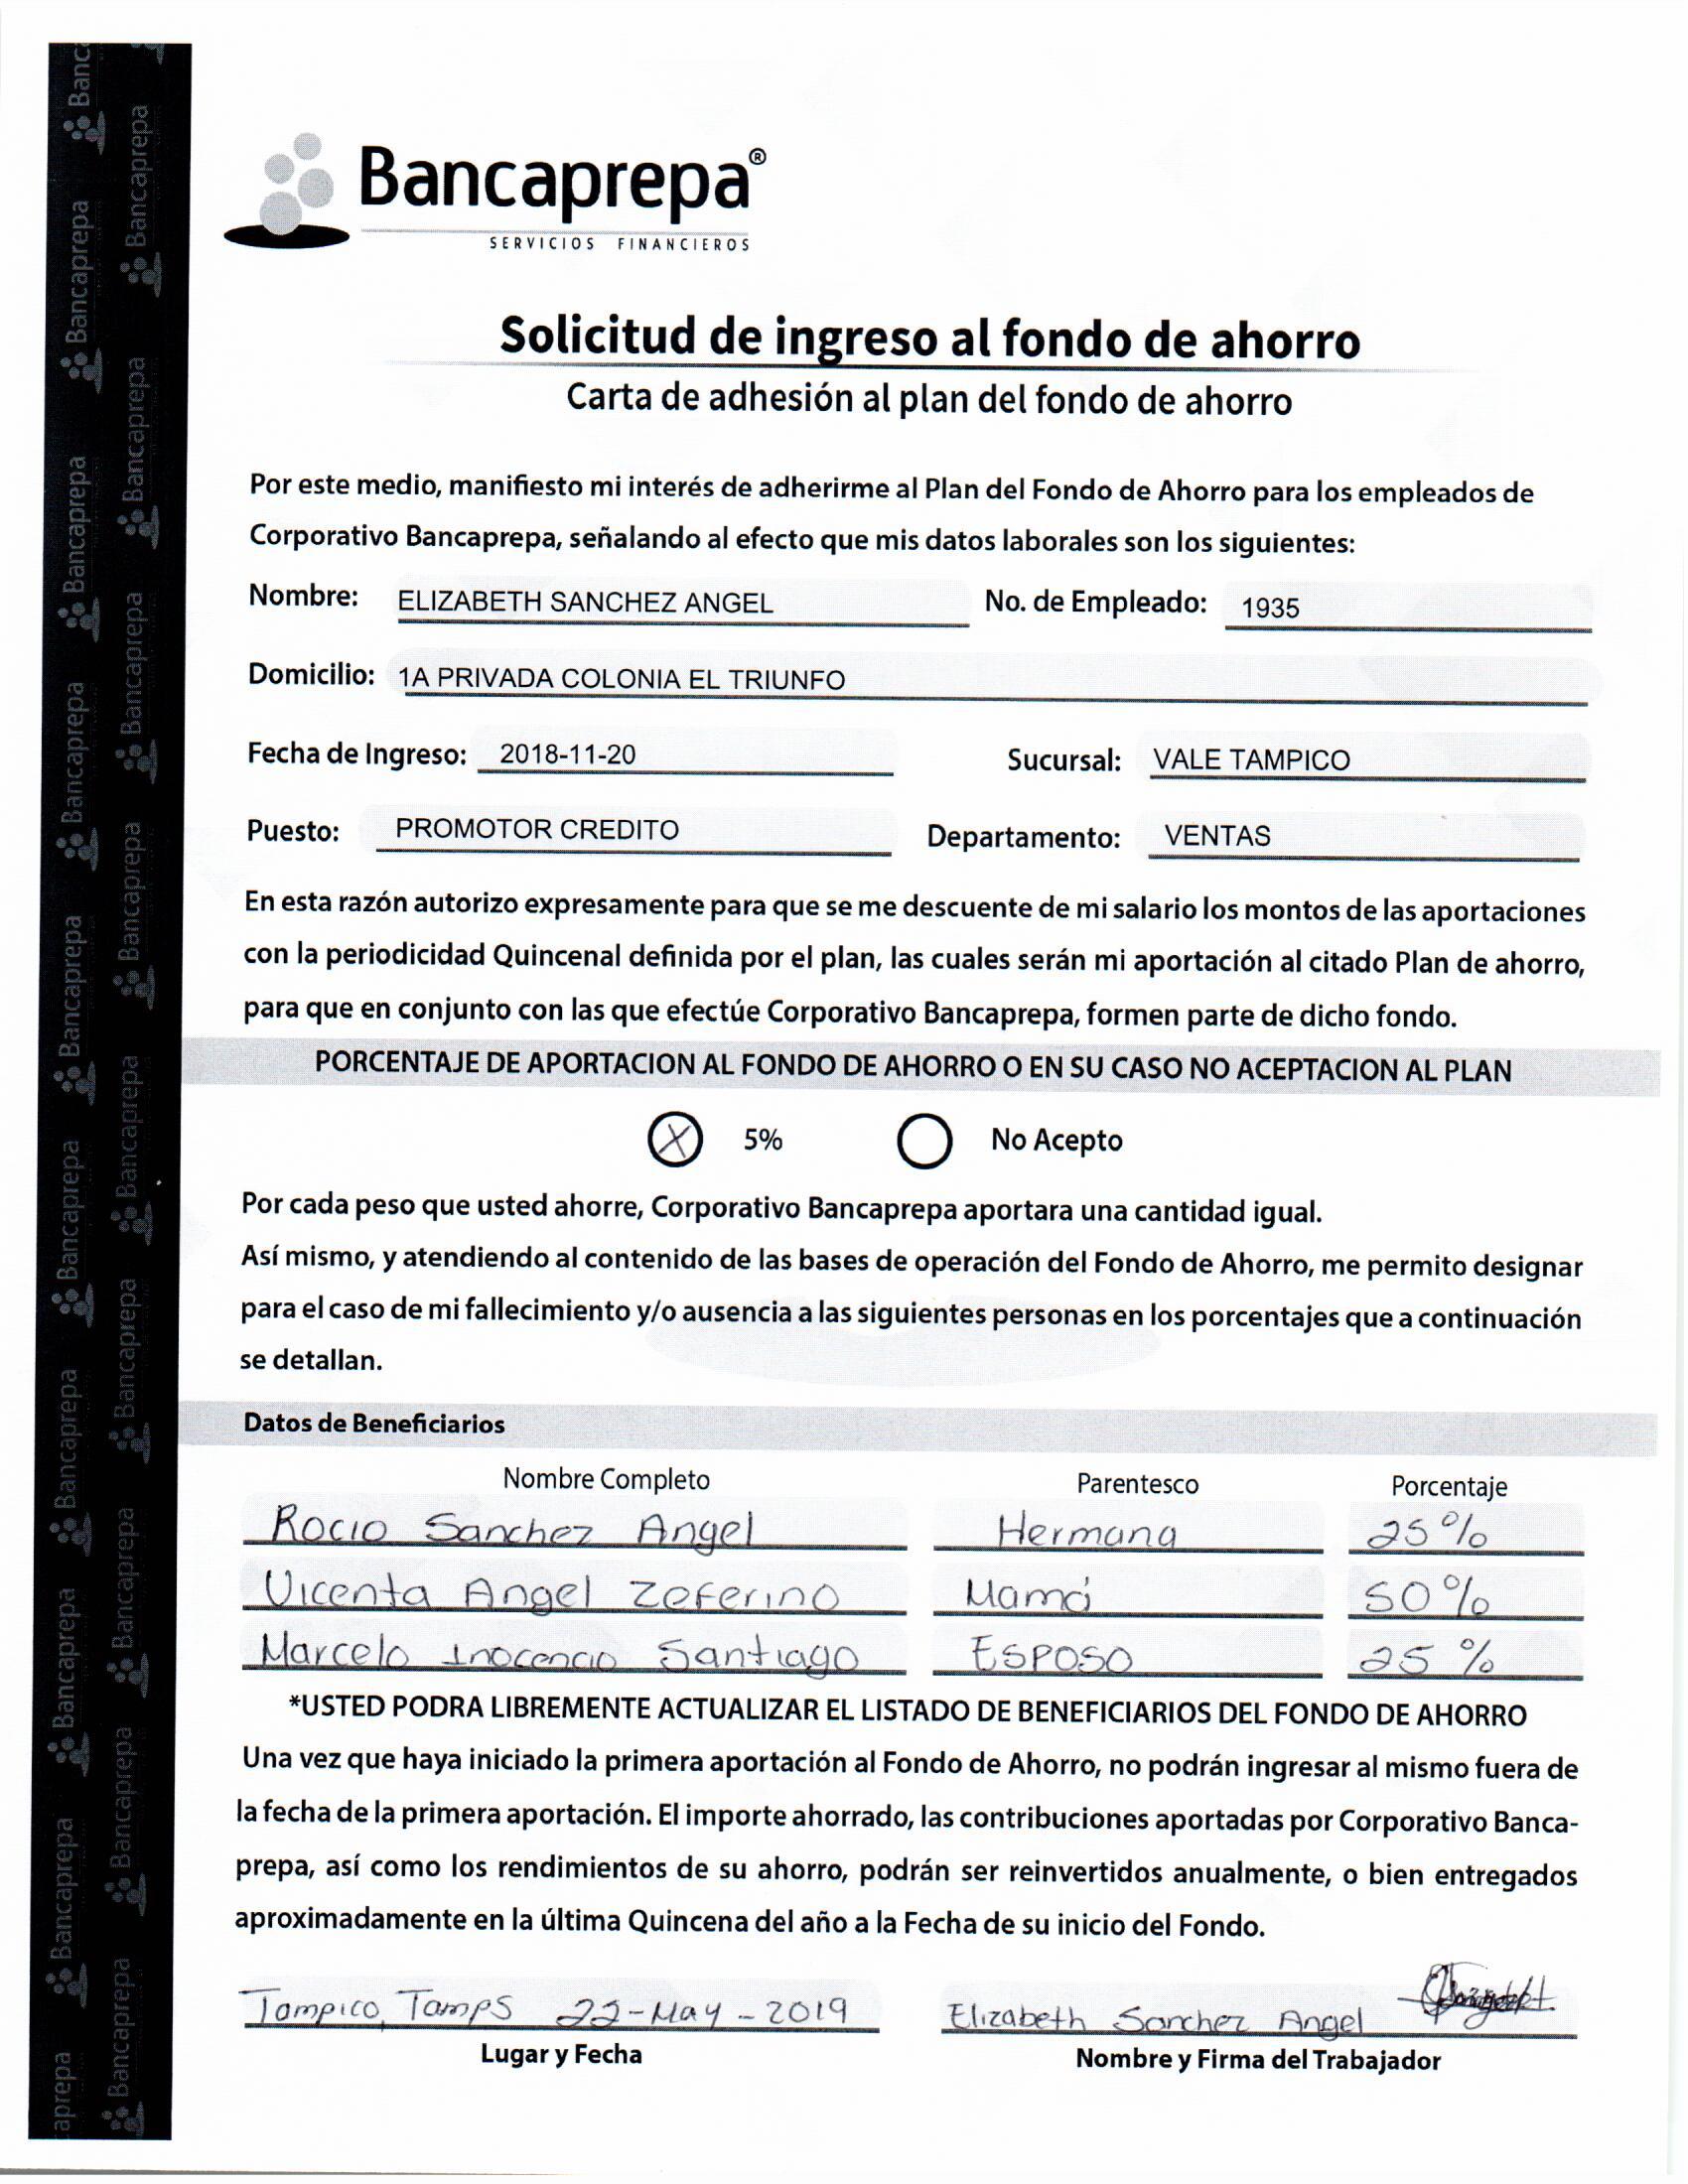 Bancaprepa®
SERVICIOS FINANCIEROS
Solicitud de ingreso al fondo de ahorro
Carta de adhesión al plan del fondo de ahorro
Por este medio, manifiesto mi interés de adherirme al Plan del Fondo de Ahorro para los empleados de
Corporativo Bancaprepa, señalando al efecto que mis datos laborales son los siguientes:
Nombre: ELIZABETH SANCHEZ ANGEL No. de Empleado: 1935
Domicilio: 1A PRIVADA COLONIA EL TRIUNFO
Fecha de Ingreso: 2018-11-20 Sucursal: VALE TAMPICO
Puesto: PROMOTOR CREDITO Departamento: VENTAS
En esta razón autorizo expresamente para que se me descuente de mi salario los montos de las aportaciones
con la periodicidad Quincenal definida por el plan, las cuales serán mi aportación al citado Plan de ahorro,
para que en conjunto con las que efectúe Corporativo Bancaprepa, formen parte de dicho fondo.
PORCENTAJE DE APORTACION AL FONDO DE AHORRO O EN SU CASO NO ACEPTACION AL PLAN
X 5% No Acepto
Por cada peso que usted ahorre, Corporativo Bancaprepa aportara una cantidad igual.
Así mismo, y atendiendo al contenido de las bases de operación del Fondo de Ahorro, me permito designar
para el caso de mi fallecimiento y/o ausencia a las siguientes personas en los porcentajes que a continuación
se detallan.
Datos de Beneficiarios
Nombre Completo Parentesco Porcentaje
Rocio Sanchez Angel Hermana 25%
Vicenta Angel Zeferino Mamá 50%
Marcelo Inocencio Santiago Esposo 25%
*USTED PODRA LIBREMENTE ACTUALIZAR EL LISTADO DE BENEFICIARIOS DEL FONDO DE AHORRO
Una vez que haya iniciado la primera aportación al Fondo de Ahorro, no podrán ingresar al mismo fuera de
la fecha de la primera aportación. El importe ahorrado, las contribuciones aportadas por Corporativo Banca-
prepa, así como los rendimientos de su ahorro, podrán ser reinvertidos anualmente, o bien entregados
aproximadamente en la última Quincena del año a la Fecha de su inicio del Fondo.
Tampico, Tamps 22-May-2019 Elizabeth Sanchez Angel
Lugar y Fecha Nombre y Firma del Trabajador